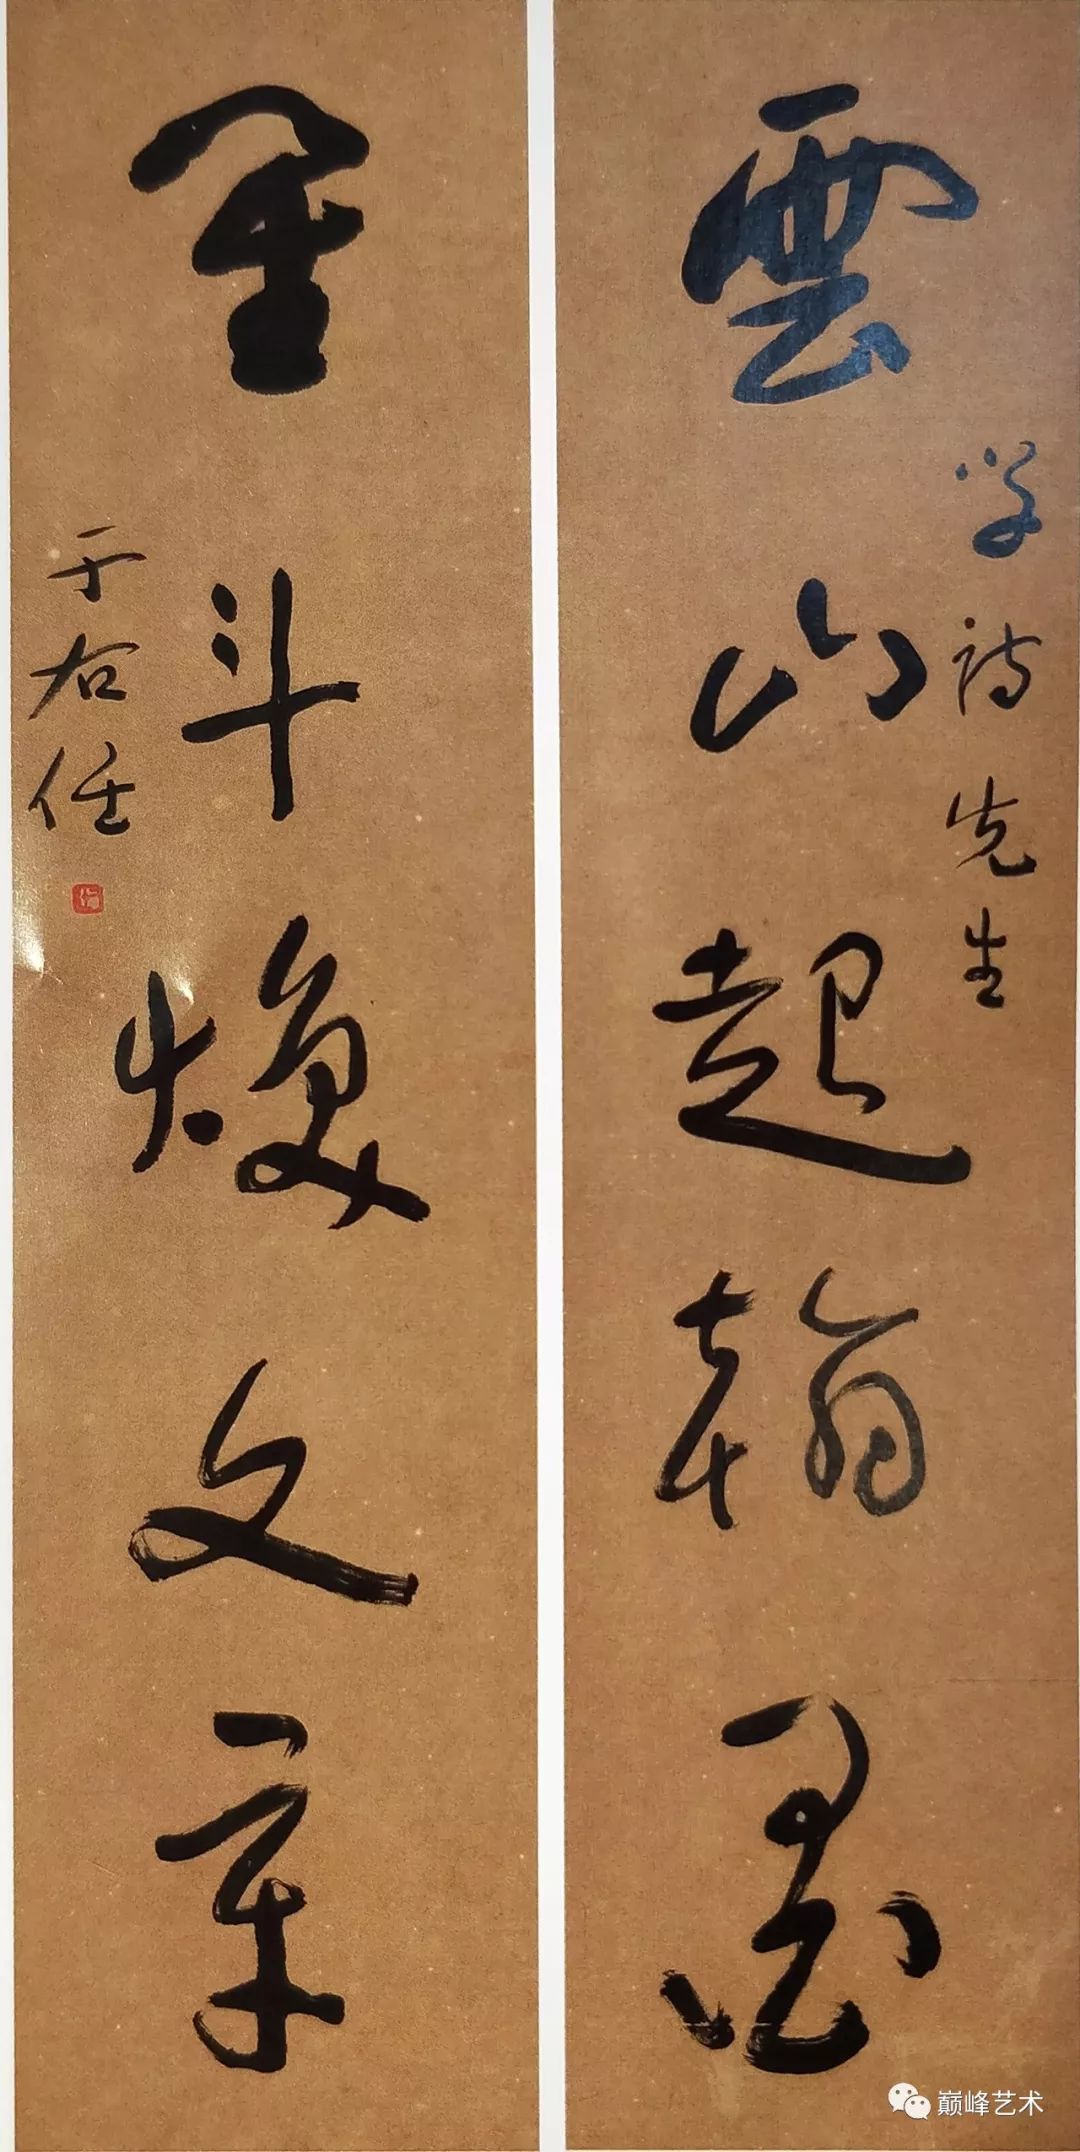 雲山起翰墨
学诗先生
星斗焕文章
于右任
巅峰艺术